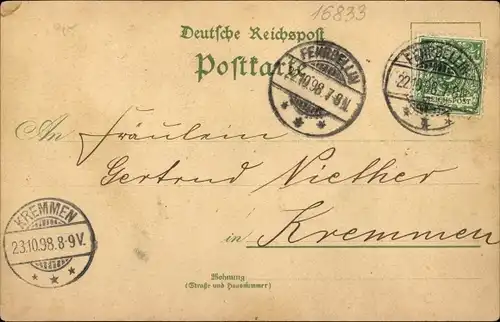 16833
Deutsche Reichspost
Postkarte
FEHRBELLIN
22.10.98.7-8N.
FEHRBELLIN
22.10.98.7-8N.
REICHSPOST
An Fräulein
Gertrud Niether
in Kremmen
KREMMEN
23.10.98.8-9V.
Wohnung
(Straße und Hausnummer)